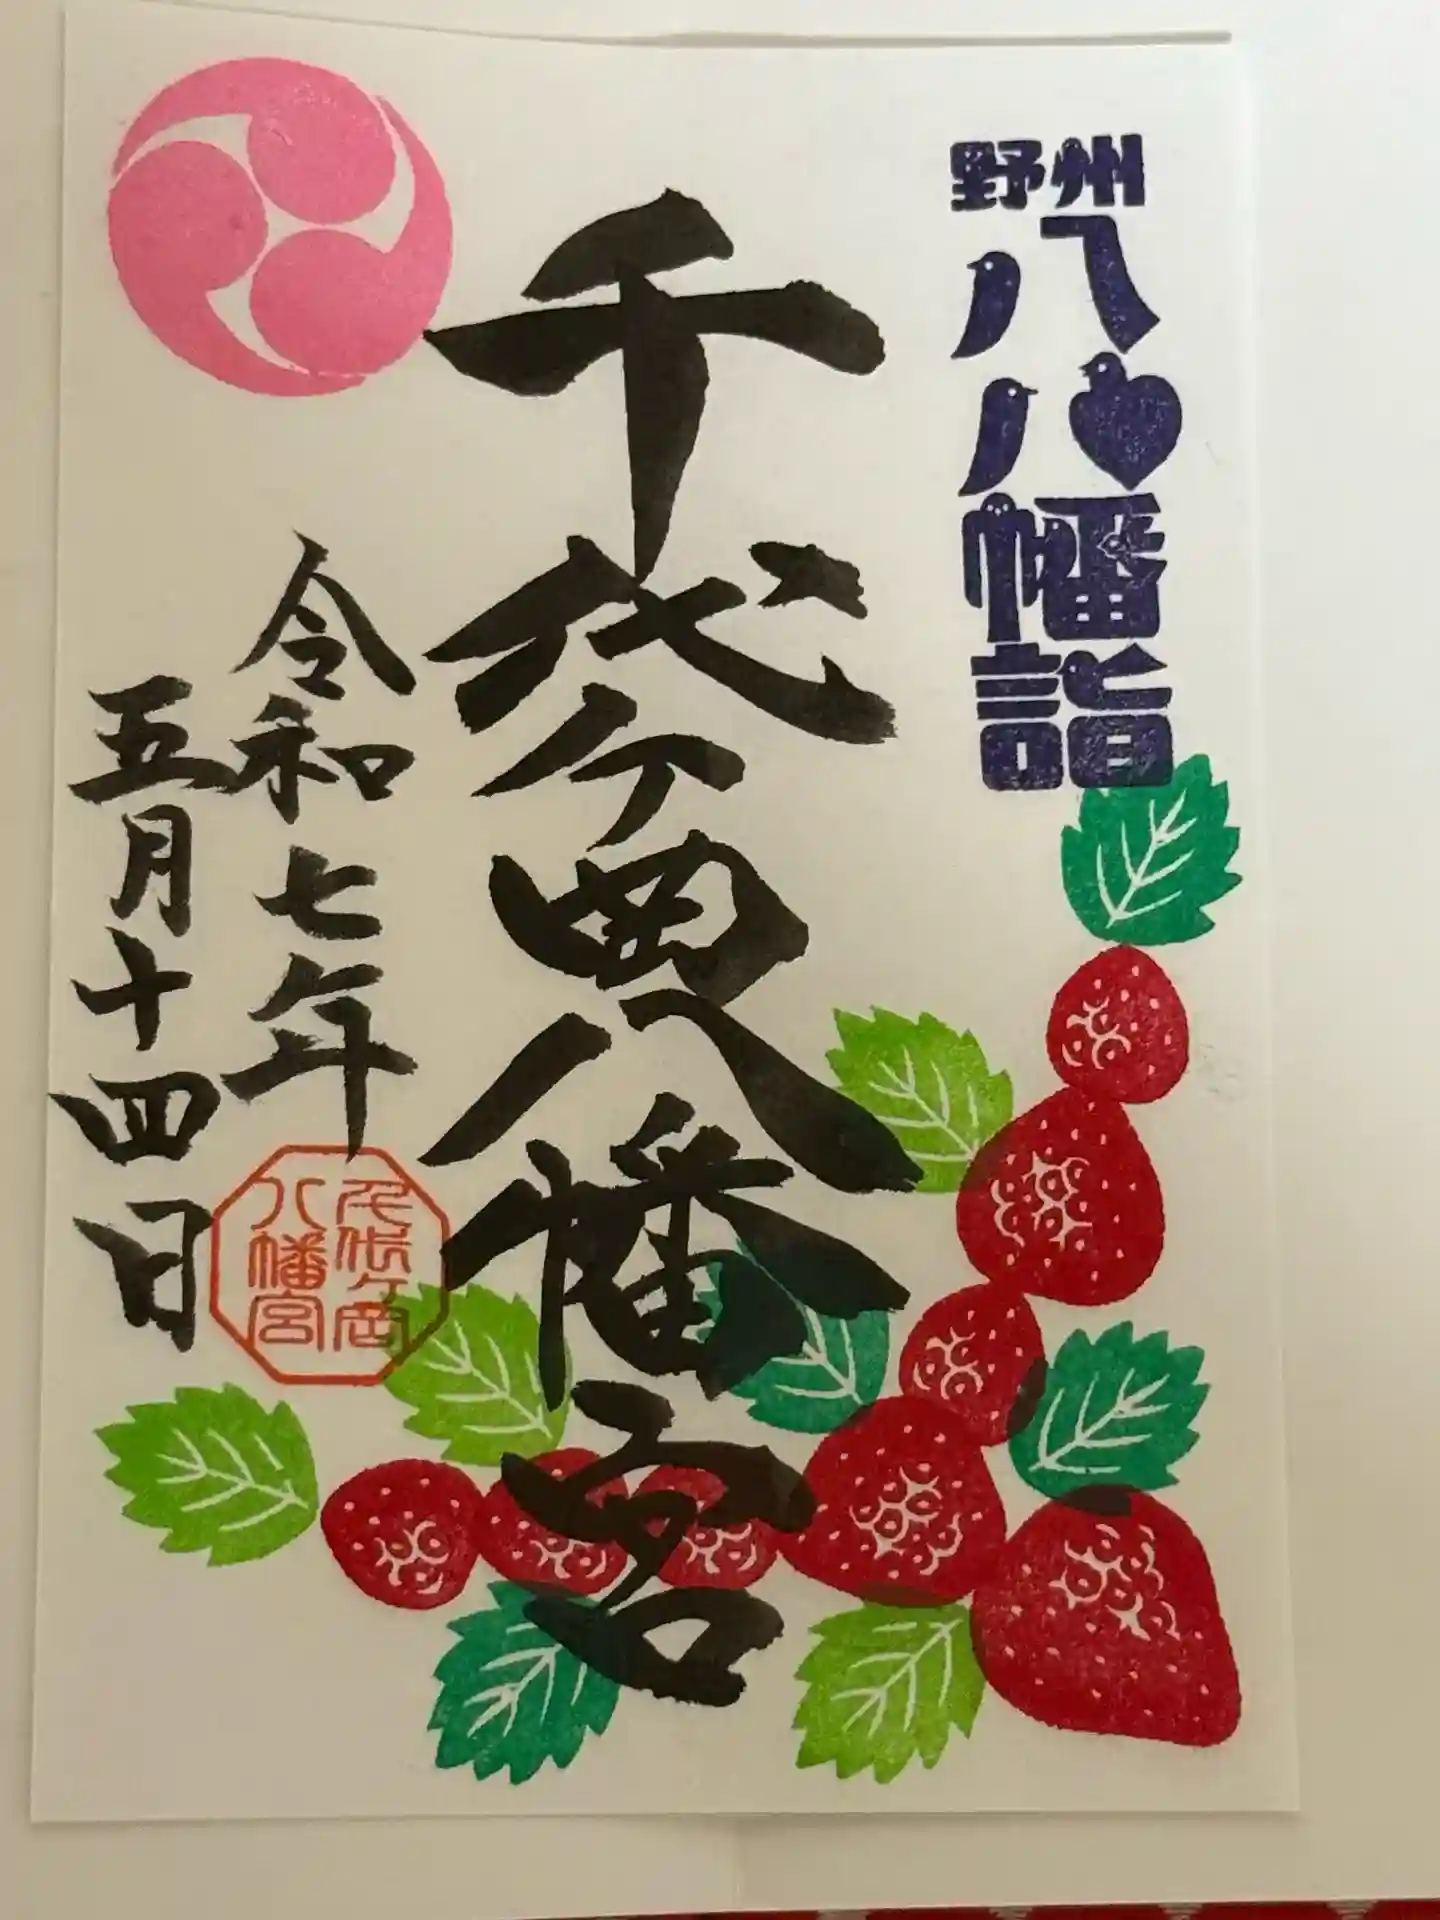 野州
八八幡詣
千代ヶ岡八幡宮
令和七年
五月十四日
千代ヶ岡
八幡宮